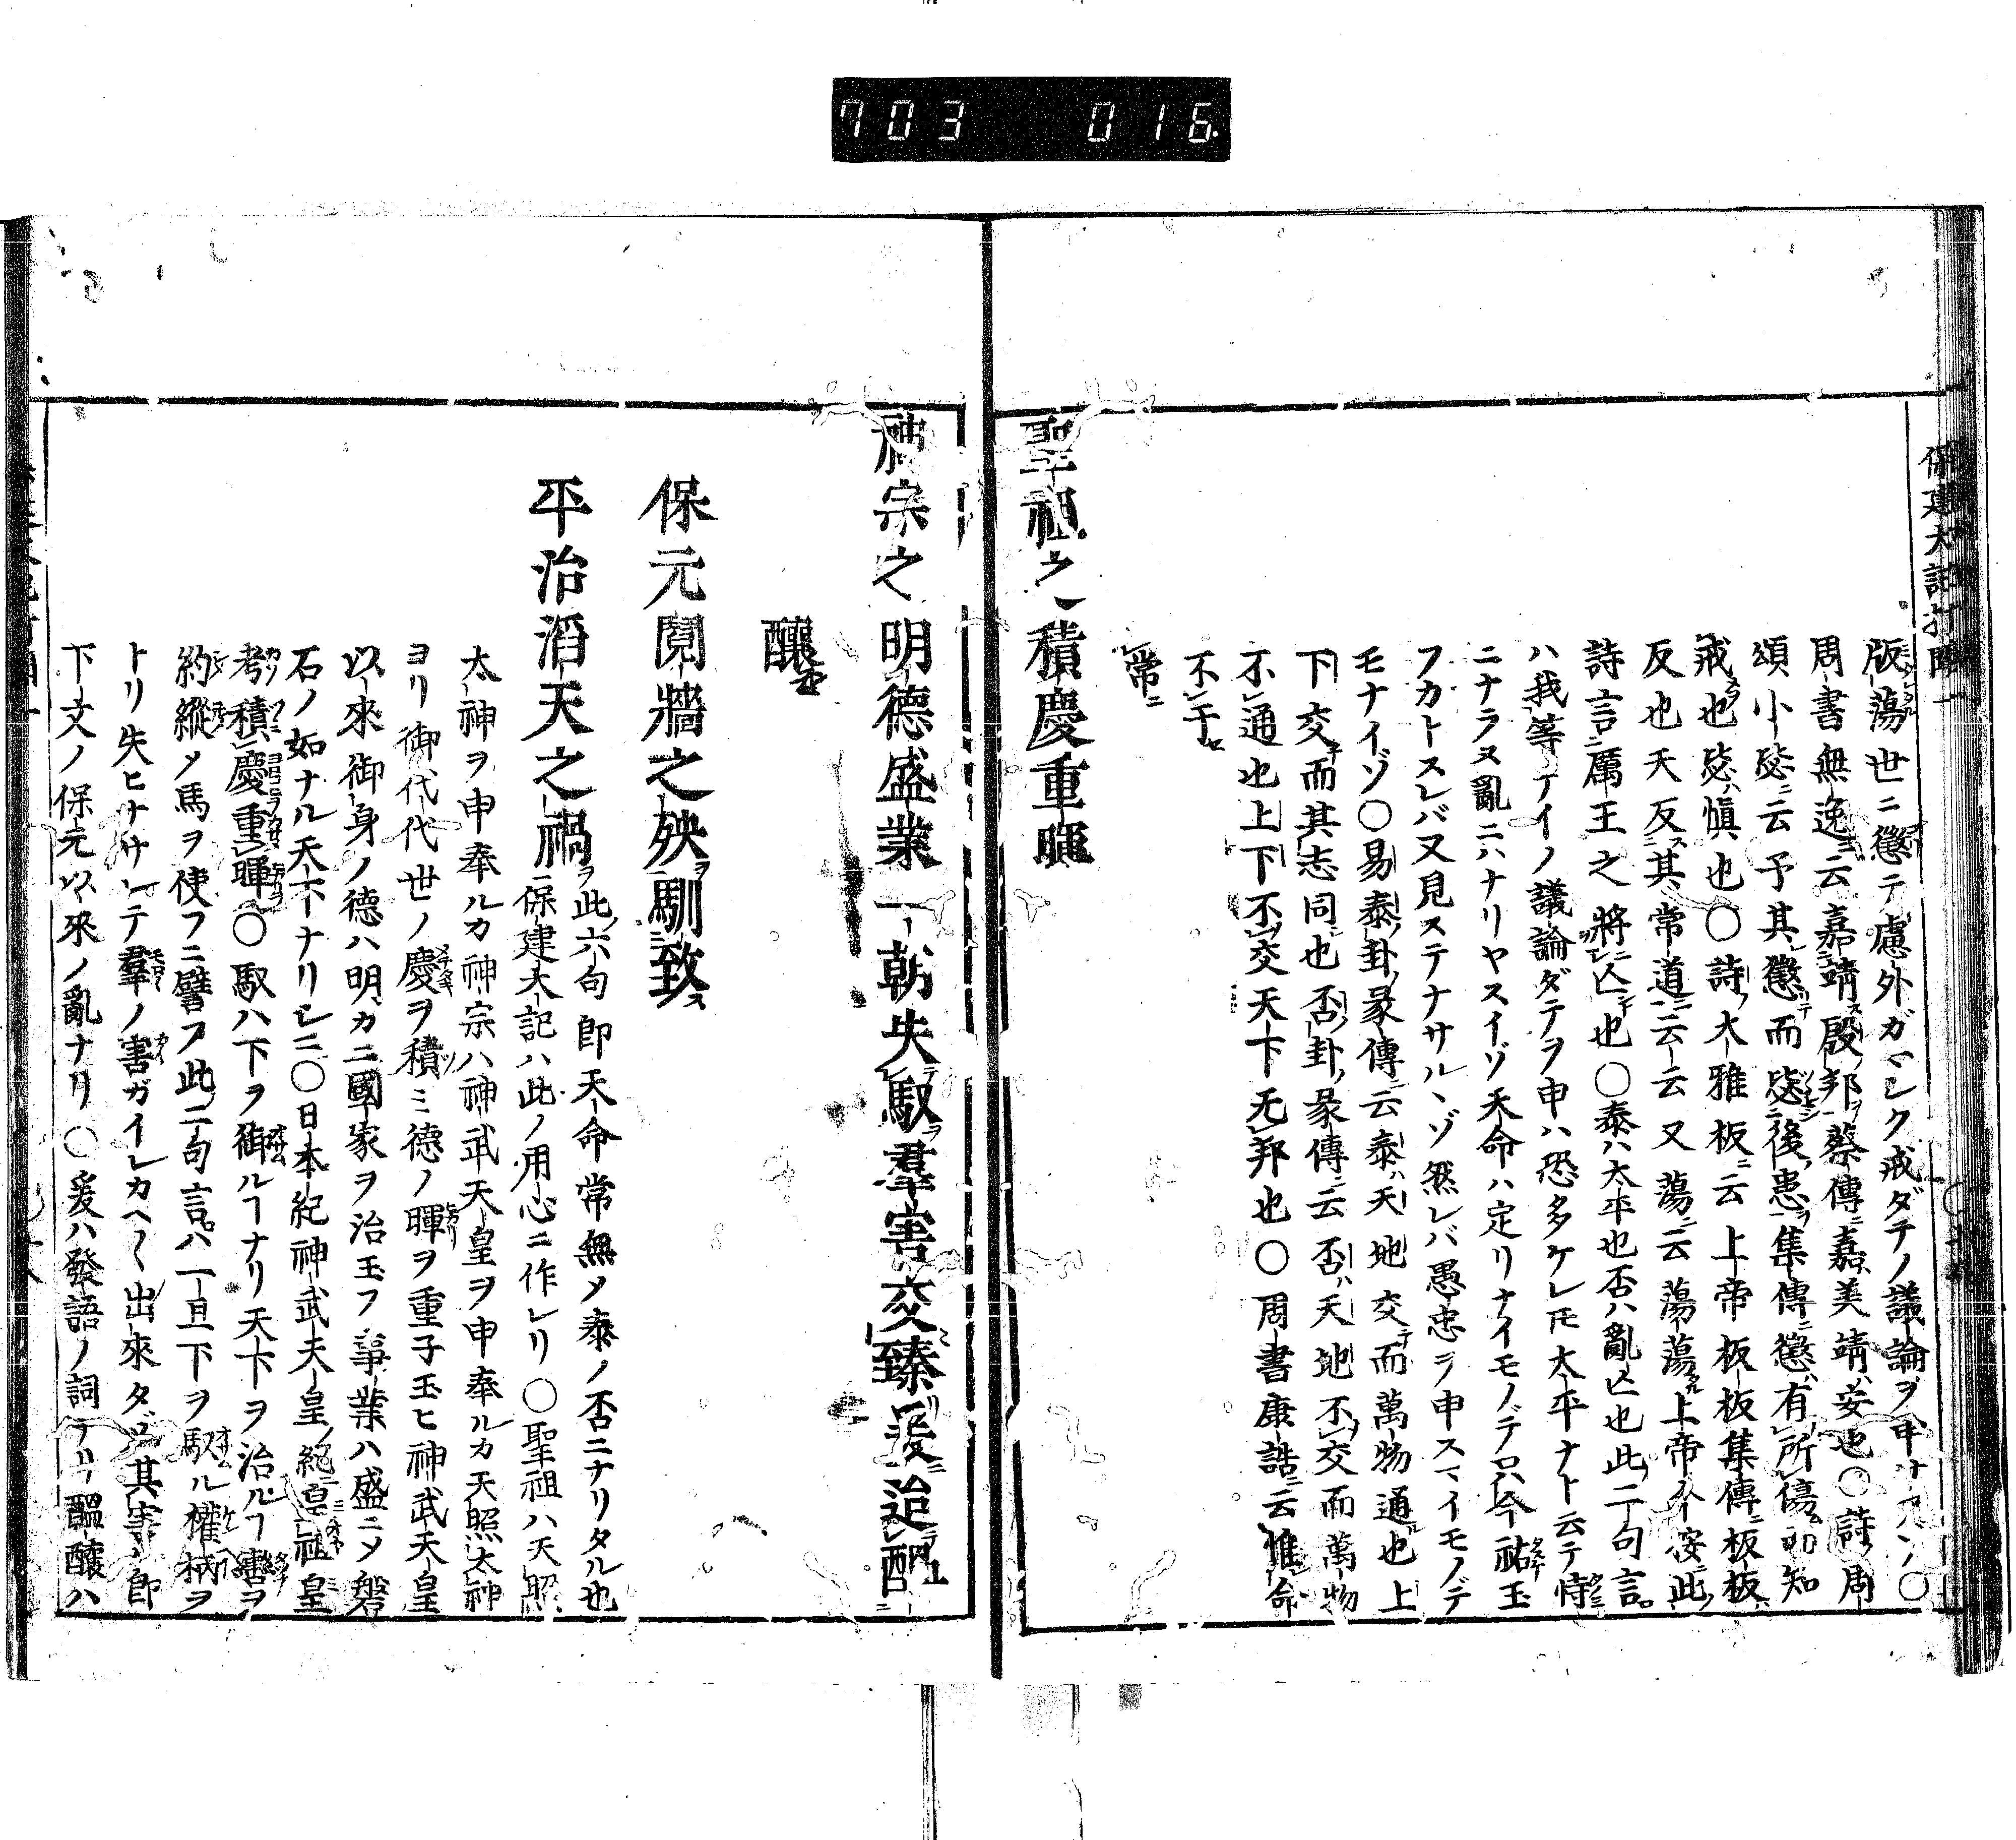 703 016
保建大記打聞一
版蕩世ニ懲テ慮外ガマシク戒ダテノ議論ヲ申ナリ○
周書無逸ニ云嘉靖殷邦蔡傳ニ嘉美靖安也○詩周
頌小毖ニ云予其懲而毖後患集傳ニ懲有所傷而知
戒也毖愼也○詩大雅板ニ云上帝板板集傳ニ板板
反也天反其常道云云又蕩ニ云蕩蕩上帝今按此
詩言厲王之將亡也○泰ハ太平也否ハ亂亡也此二句言
ハ我等テイノ議論ダテヲ申ハ恐多ケレ𪜈太平ナト云テ恃
ニナラヌ亂ニハナリヤスイゾ天命ハ定リナイモノデ只今祐玉
フカトスレバ又見ステナサルヽゾ然レバ愚忠ヲ申スマイモノデ
モナイゾ○易泰卦彖傳ニ云泰ハ天地交而萬物通也上
下交而其志同也否卦彖傳ニ云否ハ天地不交而萬物
不通也上下不交天下无邦也○周書康誥ニ云惟命
不于
常ニ
聖祖之積慶重暉
神宗之明德盛業一朝失馭羣害交臻爰迨醞
釀
保元鬩牆之殃馴致
平治滔天之禍此六句即天命常無メ泰ノ否ニナリタル也
保建大記ハ此ノ用心ニ作レリ○聖祖ハ天照
太神ヲ申奉ルカ神宗ハ神武天皇ヲ申奉ルカ天照太神
ヨリ御代代世ノ慶ヲ積ミ德ノ暉ヲ重子玉ヒ神武天皇
以來御身ノ德ハ明カニ國家ヲ治玉フ事業ハ盛ニメ磐
石ノ如ナル天下ナリシニ○日本紀神武天皇紀ニ皇祖皇
考積慶重暉○馭ハ下ヲ御ルヿナリ天下ヲ治ルヿ轡ヲ
約縱メ馬ヲ使フニ譬フ此二句言ハ一旦下ヲ馭ル權柄ヲ
トリ失ヒナサレテ羣ノ害ガイレカヘ〱出來タゾ其害ハ即
下文ノ保元以來ノ亂ナリ○爰ハ發語ノ詞ナリ醞釀ハ